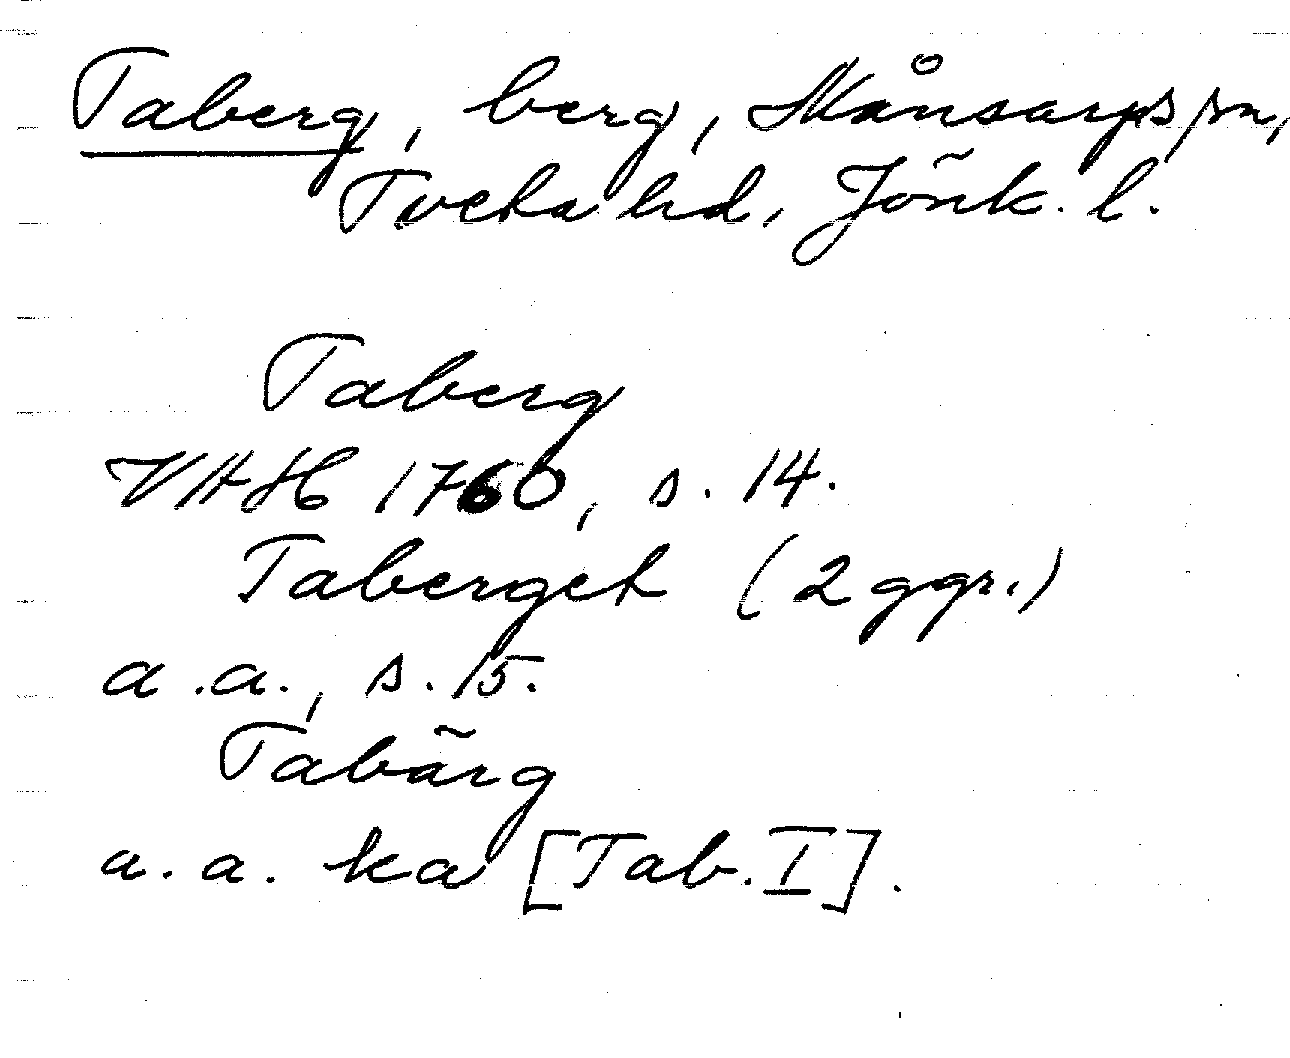 Taberg, berg, Månsarps sn,
Tveta hd, Jönk. l.
Taberg
VAH 1760, s. 14.
Taberget (2 ggr.)
a.a., s. 15.
Tabärg
a.a. ka [Tab. I].